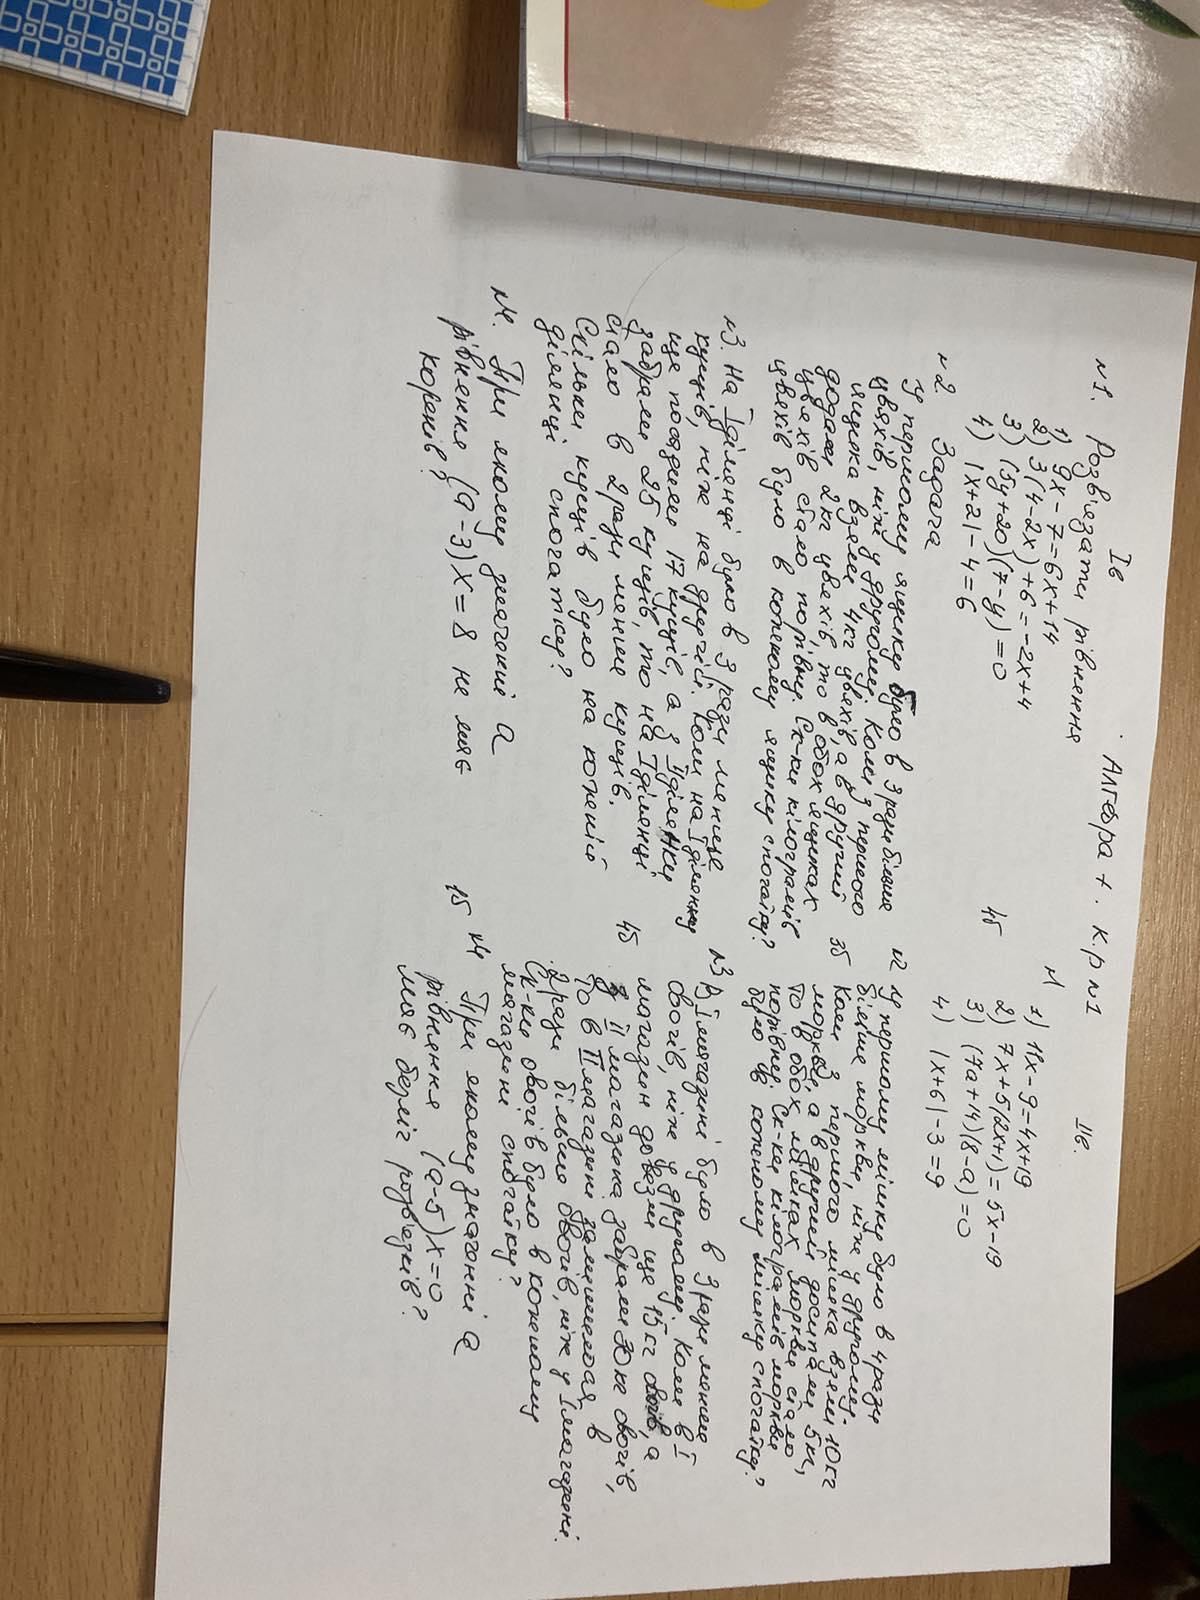 Алгебра 7. К.р №1
Iв
№1. Розв'язати рівняння
1) 9x - 7 = 6x + 14
2) 3(4 - 2x) + 6 = -2x + 4
3) (5y + 20)(7 - y) = 0
4) |x + 2| - 4 = 6
4б
№2. Задача
У першому ящику було в 3 рази більше
цвяхів, ніж у другому. Коли з першого
ящика взяли 4кг цвяхів, а в другий
додали 2кг цвяхів то в обох ящиках
цвяхів стало порівну. Ск-ки кілограмів
цвяхів було в кожному ящику спочатку?
3б
№3. На I ділянці було в 3 рази менше
кущів, ніж на другій. Коли на I ділянку
ще посадили 17 кущів, а з II ділянки
забрали 25 кущів, то на I ділянці
стало в 2 рази менше кущів.
Скільки кущів було на кожній
ділянці спочатку?
4б
№4. При якому значенні a
рівняння (a - 3)x = 8 не має
коренів?
1б
IIв.
№1
1) 11x - 9 = 4x + 19
2) 7x + 5(2x + 1) = 5x - 19
3) (7a + 14)(8 - a) = 0
4) |x + 6| - 3 = 9
№2 У першому мішку було в 4 рази
більше моркви, ніж у другому.
Коли з першого мішка взяли 10кг
моркви, а в другий досипали 5кг,
то в обох мішках моркви стало
порівну. Ск-ки кілограмів моркви
було в кожному мішку спочатку?
№3 В I магазині було в 3 рази менше
овочів, ніж у другому. Коли в I
магазин довезли ще 15кг овочів, а
з II магазина забрали 30кг овочів,
то в II магазині залишилось в
2 рази більше овочів, ніж у I магазині.
Ск-ки овочів було в кожному
магазині спочатку?
№4 При якому значенні a
рівняння (a - 5)x = 0
має безліч розв'язків?